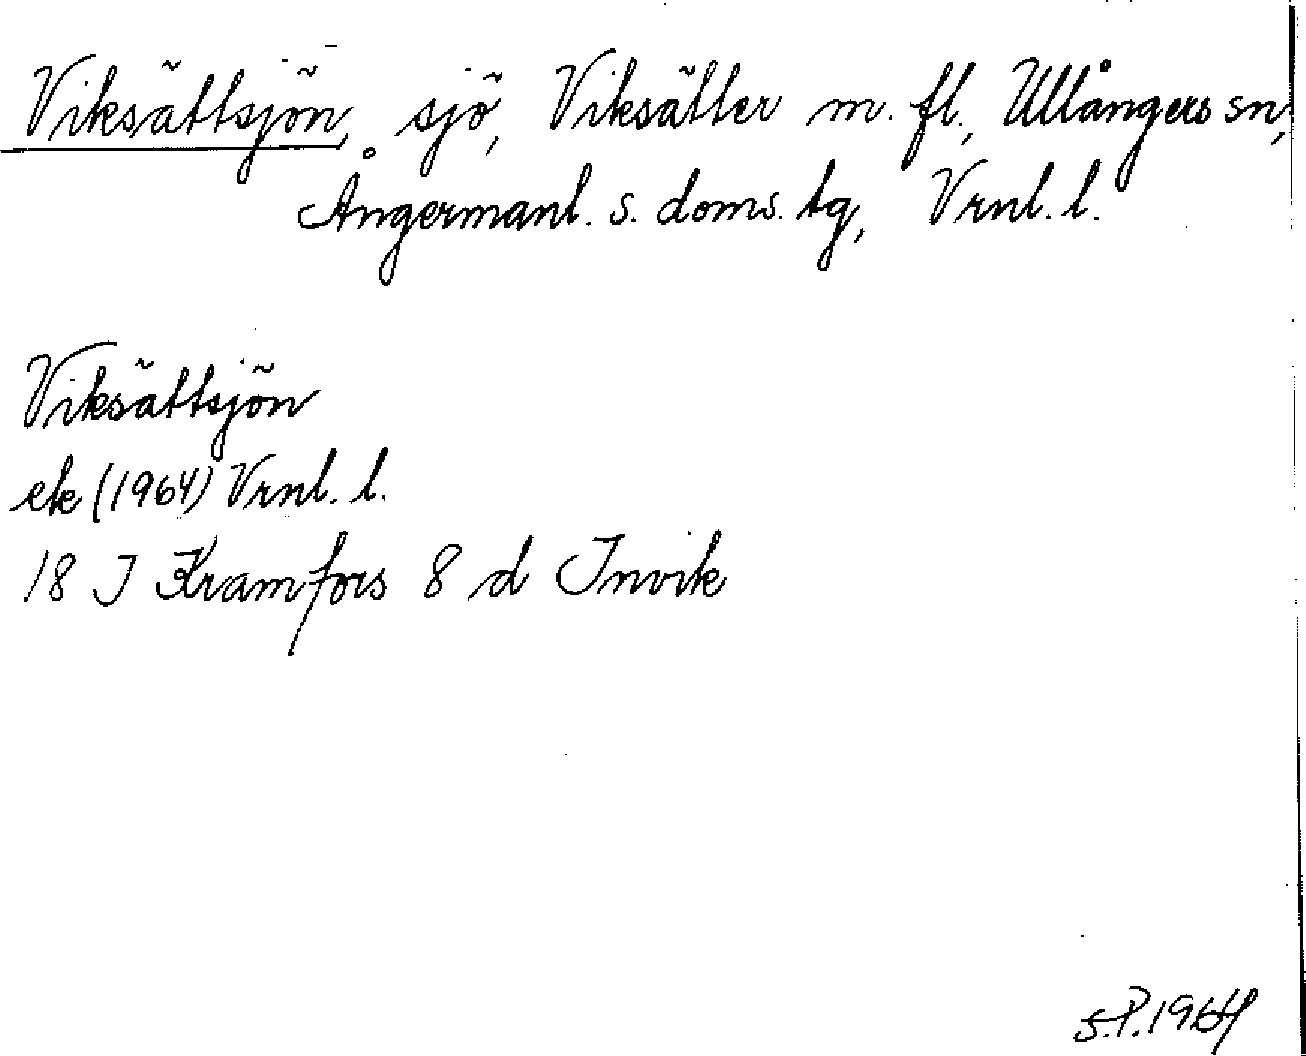 Viksättsjön, sjö, Viksätter m. fl., Ullångers sn,
Ångermanl. s. doms. tg, Vrnl. l.
Viksättsjön
ek (1964) Vrnl. l.
18 J Kramfors 8 d Invik
S.P. 1964